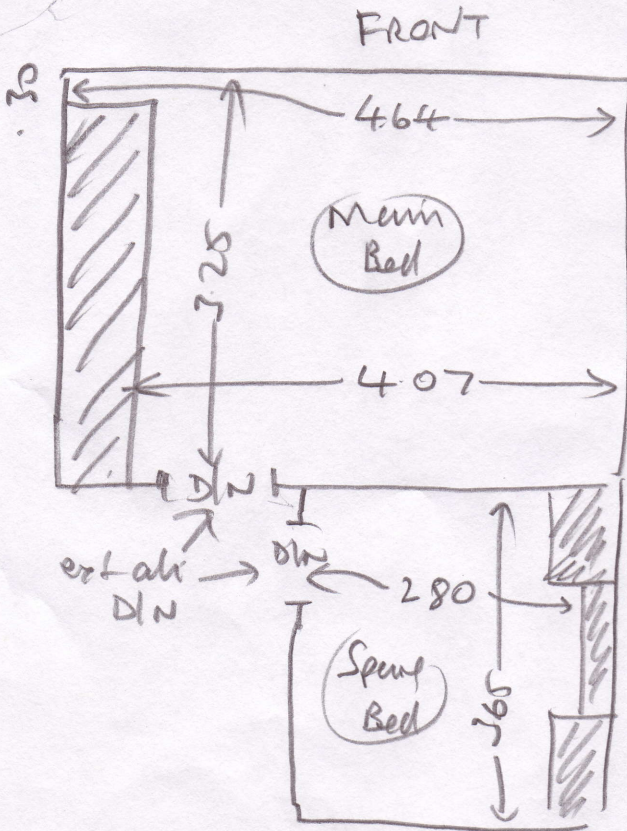 FRONT
.30
4.64
Main
Bed
3.28
4.07
D/N
D/N
ext ali
D/N
280
Spare
Bed
365